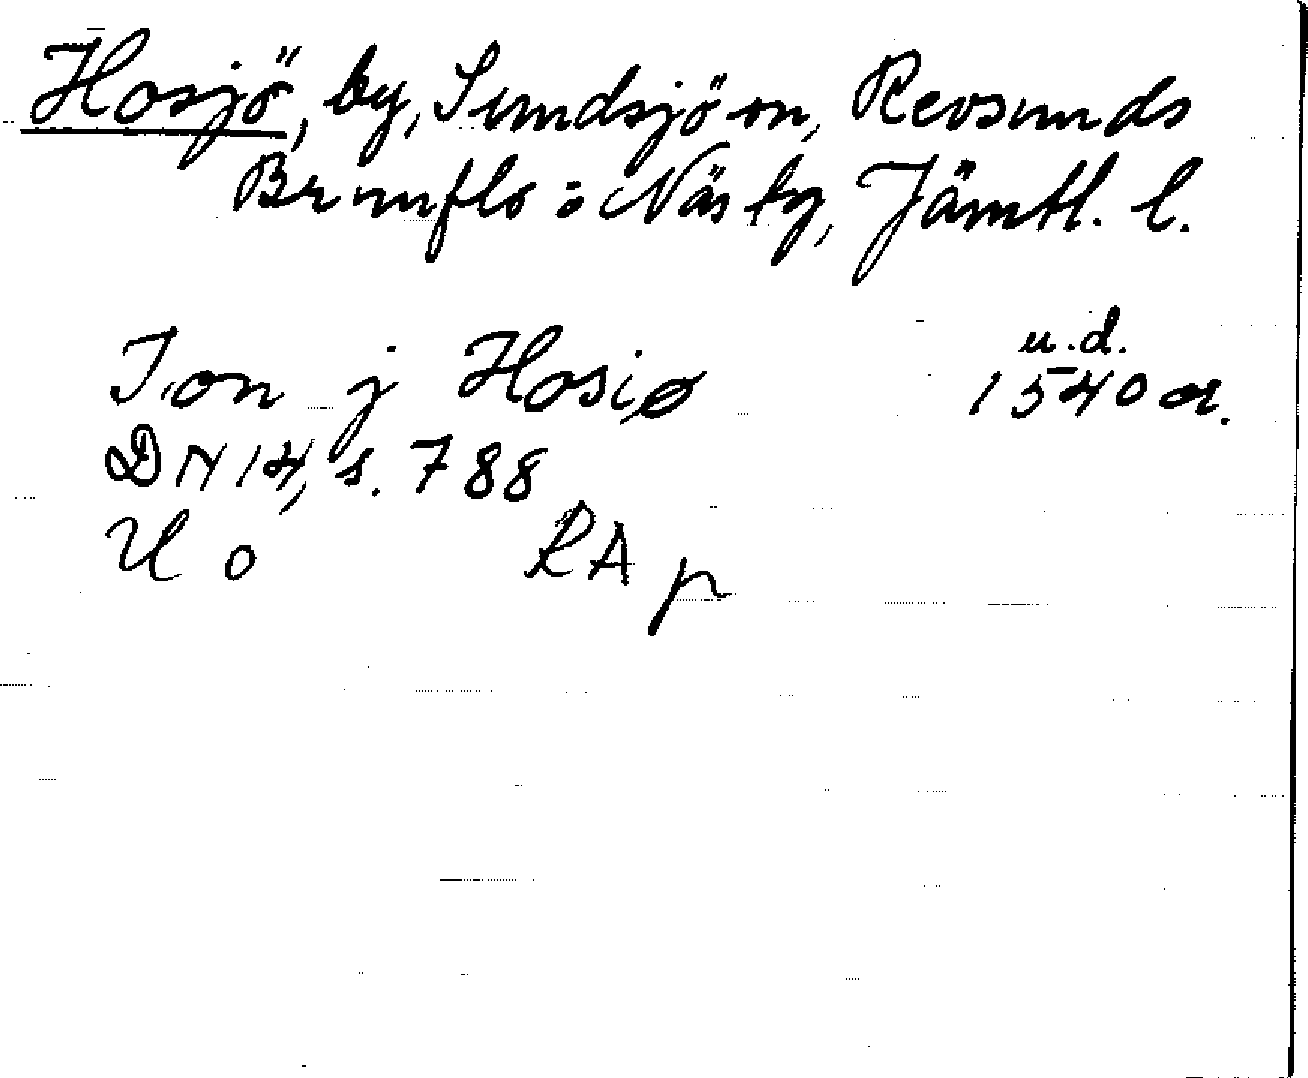 Hosjö, by, Sundsjö sn, Revsunds
Brunflo o Näs tg, Jämtl. l.
u.d.
Jon j Hosiø 1540 or.
DN 14, s. 788
U o RA p